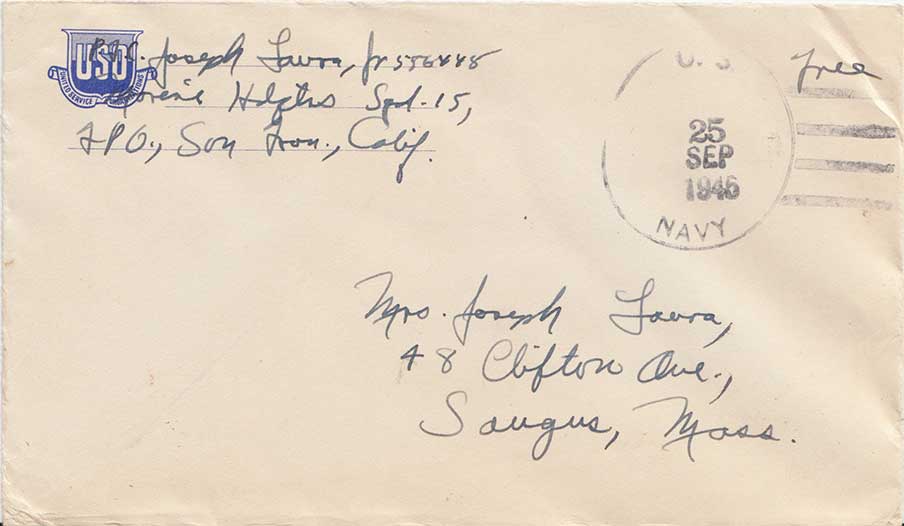 USO
UNITED SERVICE ORGANIZATIONS
P.f.c. Joseph Laura, Jr 556448
Marine Hdqtrs Sqd-15,
FPO., San Fran., Calif.
Free
U.S.
25
SEP
1945
NAVY
Mrs. Joseph Laura,
48 Clifton Ave.,
Saugus, Mass.